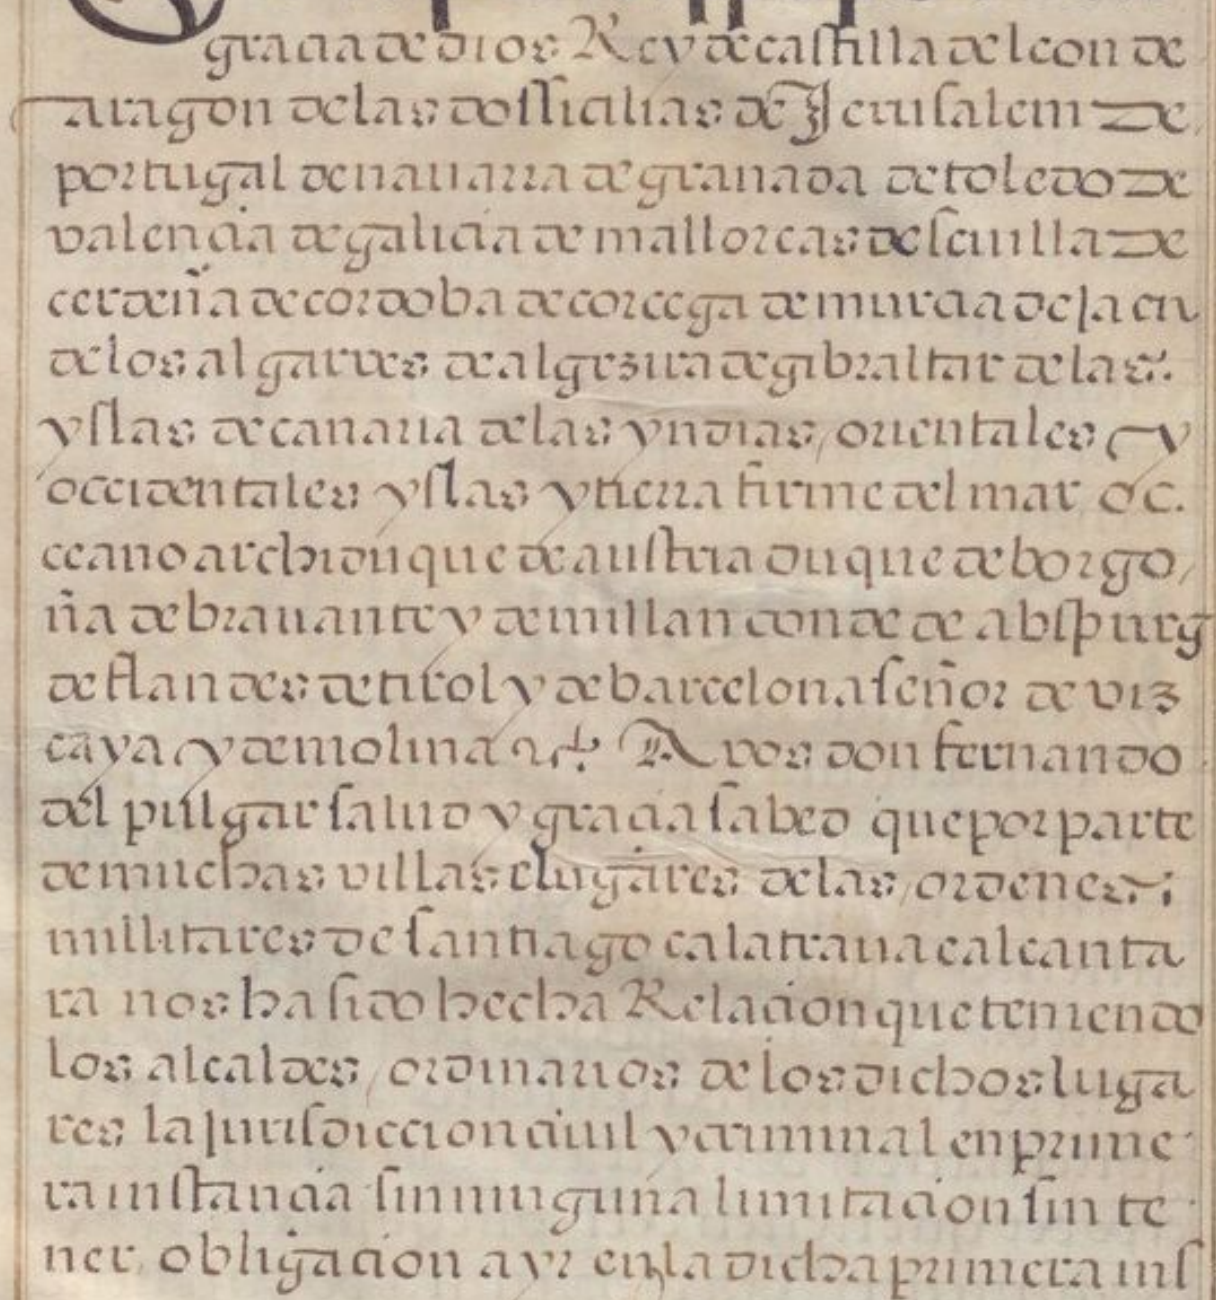 gracia de dios Rey de castilla de leon de
aragon de las dos sicilias de Jerusalem de
portugal de nauarra de granada de toledo de
valencia de galicia de mallorcas de seuilla de
cerdeña de cordoba de corcega de murcia de jaen
de los algarues de algezira de gibraltar de las
yslas de canaria de las yndias orientales y
occidentales yslas y tierra firme del mar oc
ceano archiduque de austria duque de borgo
ña de brauante y de millan conde de abspurg
de flandes de tirol y de barcelona señor de viz
caya y de molina &c. A vos don fernando
del pulgar salud y gracia sabed que por parte
de muchas villas e lugares de las ordenes
militares de santiago calatraua e alcanta
ra nos ha sido hecha Relacion que teniendo
los alcaldes ordinarios de los dichos luga
res la jurisdiccion ciuil y criminal en prime
ra instancia sin ninguna limitacion sin te
ner obligacion a yr en la dicha primera ins